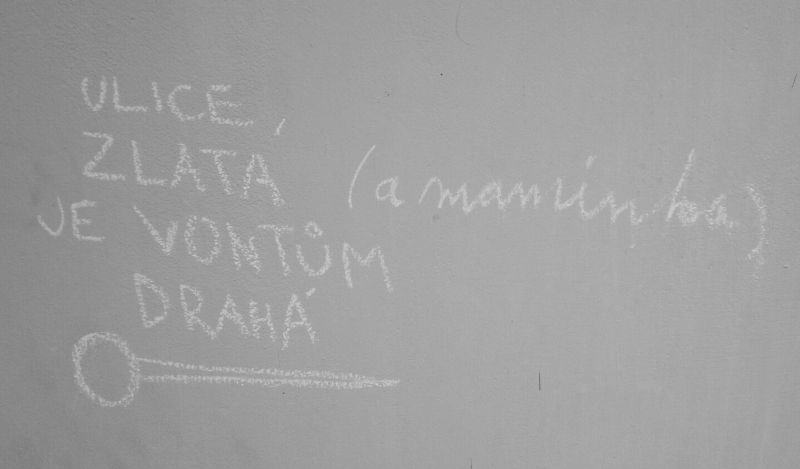 ULICE
ZLATÁ
JE VONTŮM
DRAHÁ
(a maminka)